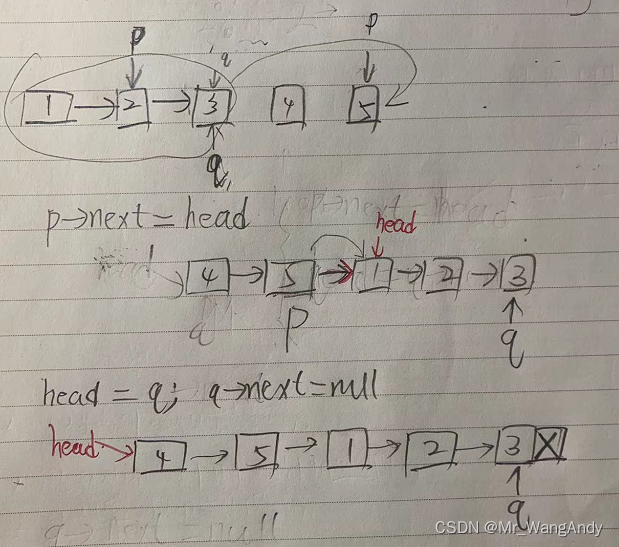 p q p
1 → 2 → 3 4 5
q
p→next = head
head
4 → 5 → 1 → 2 → 3
p q
head = q; q→next=null
head → 4 → 5 → 1 → 2 → 3 X
q
q→next = null
CSDN @Mr_WangAndy